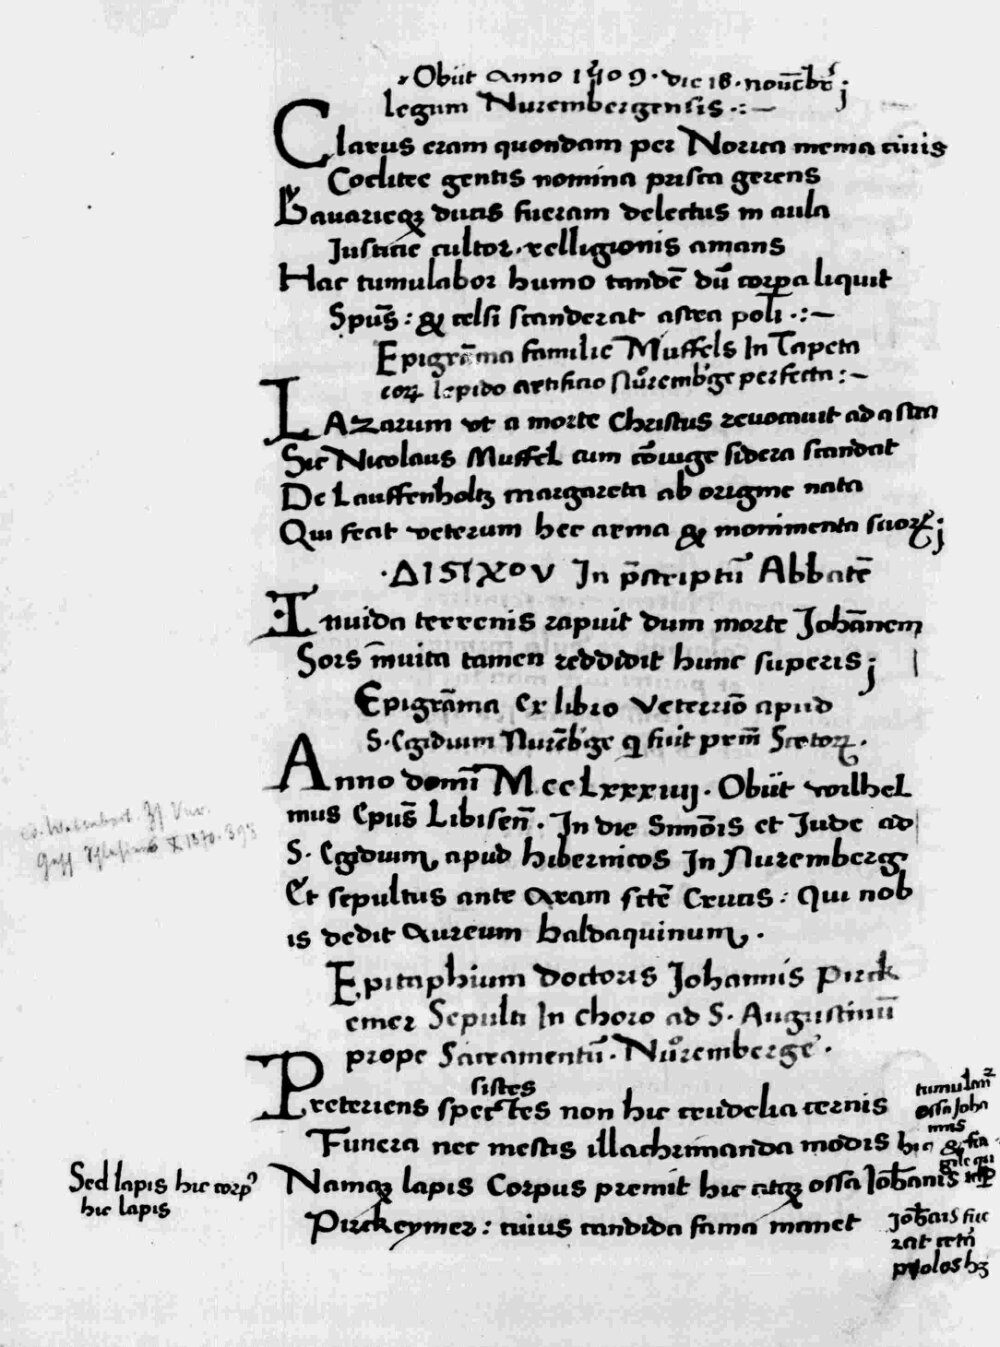 Obiit anno 1509. die 18. nouēbr̄;
legum Nurembergensis .:—
Clarus eram quondam per Norica menia ciuis
Coclitee gentis nomina prisca gerens
Bauarieqꝫ ducis fueram delectus in aula
Justicie cultor. relligionis amans
Hac tumulabor humo tandē dū corpa liquit
Spūs: & celsi scanderat astra poli .:—
Epigrāma familie Muffels In Tapeta
corꝝ lepido artificio Nůremb'ge perfecta:—
LAzarum vt a morte Christus reuocauit ad astra
Sic Nicolaus Muffel cum cōiuge sidera scandat
De Lauffenholtz margareta ab origine nata
Qui fecit veterum hec arma & monimenta suorꝝ;
·ΔΙSΙΧΟV In p̄scriptū Abbatē
Inuida terrenis rapuit dum morte Johānem
Sors īnuita tamen reddidit hunc superis;
Epigrāma Ex libro Veterrīo apud
S. Egidium Nurēb'ge q̄ fuit prim̄ Scotorꝝ.
Anno domī MccLxxxiiij. Obiit wilhel
mus Epūs Libisen̄. In die Simōis et Jude ad
S. Egidium, apud hibernicos In Nuremberg
Et sepultus ante Aram sctē Crucis: Qui nob
is dedit Aureum baldaquinum, .
Epitaphium doctoris Johannis Pirck
emer Sepulti In choro ad S. Augustinū
prope Sacramentū. Nůremberge.
sistes
Preteriens spectes non hic crudelia cernis
Funera nec mestis illachrimanda modis
Namqꝫ lapis Corpus premit hic atqꝫ ossa Joh̄anis
Pirckeymer: cuius candida fama manet
Sed lapis hic corpꝰ
hic lapis
ossa Joha
nnis
hic &
Joh̄ais fue
rat